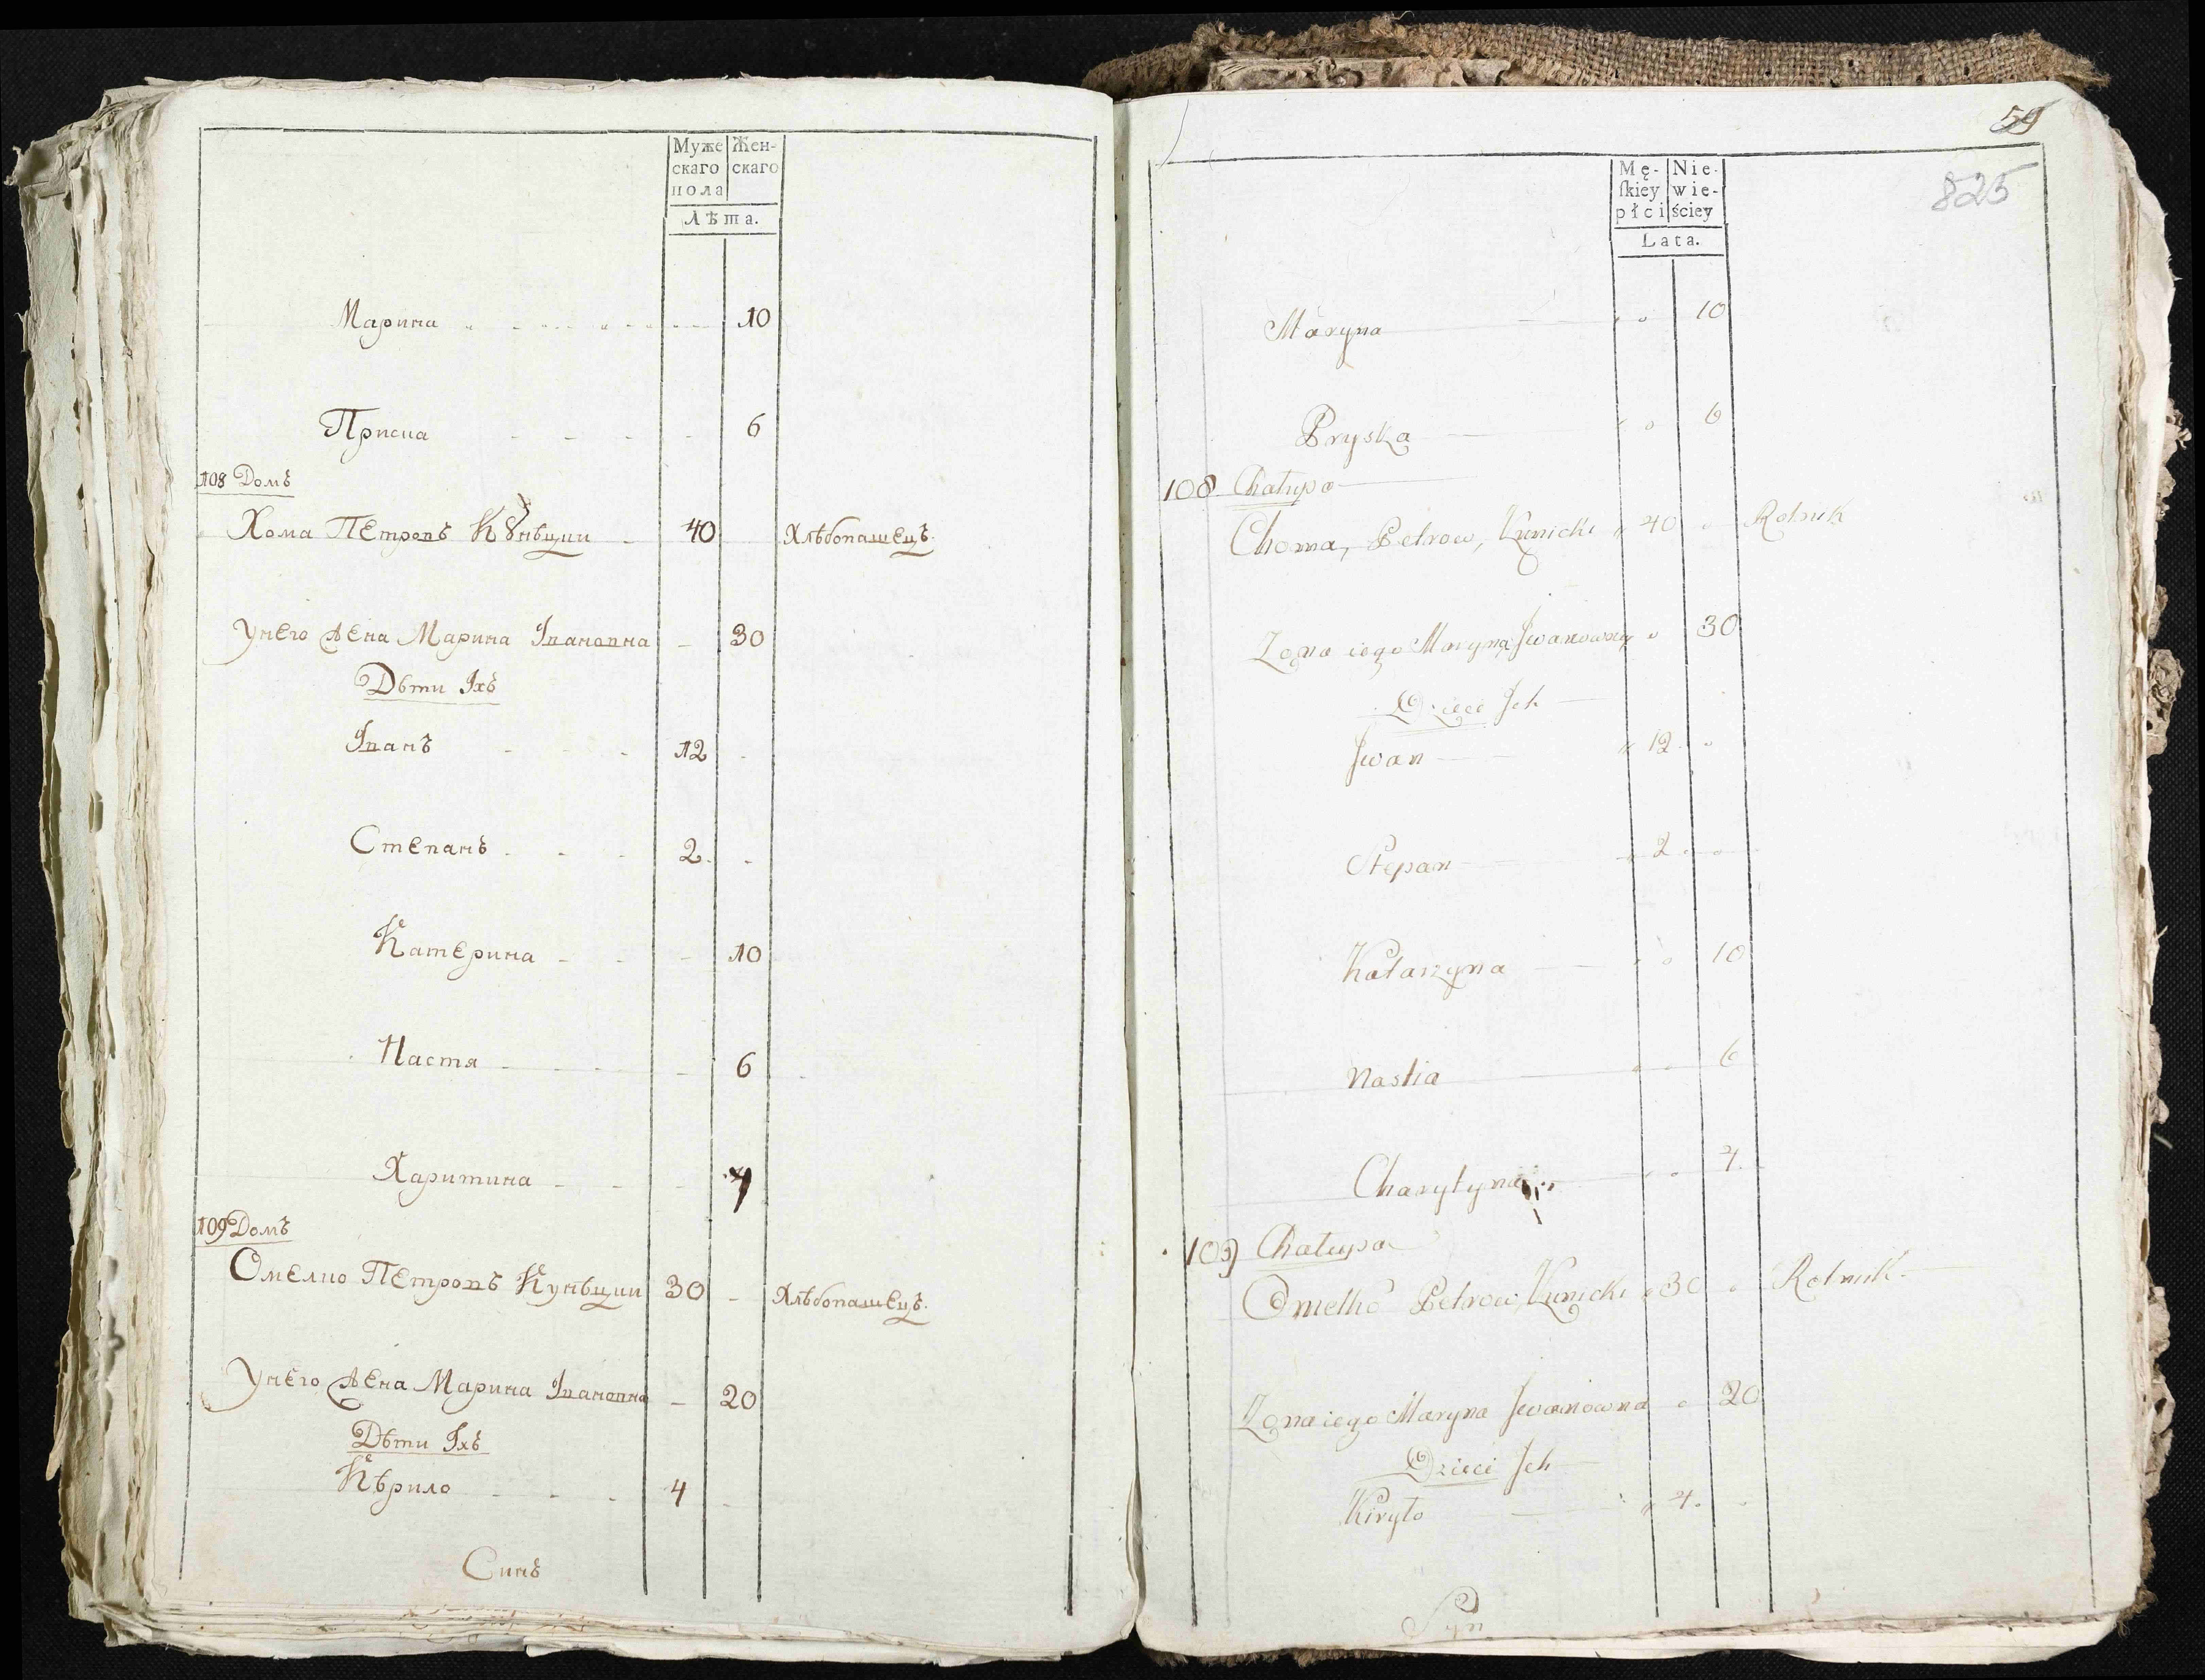 Муже Жен-
скаго скаго
пола
Лѣта.
Марина 10
Приска 6
108 Домъ
Хома Петровъ Кунѣцки 40 Хлѣбопашецъ.
Унего Жена Марина Iвановна 30
Дѣти Iхъ
Iванъ 12
Степанъ 2
Катерина 10
Настя 6
Харитина 4
109 Домъ
Омелко Петровъ Кунѣцки 30 Хлѣбопашецъ.
Унего Жена Марина Iвановна 20
Дѣти Iхъ
Кѣрило 4
Синъ
59
825
Mę- Nie-
ſkiey wie-
płci ściey
Lata.
Maryna 10
Pryska 6
108 Chałupa
Choma, Petrow, Kunicki 40 Rolnik
Zona iego Maryna Jwanowna 30
Dzieci Jch
Jwan 12
Stepan 2
Katarzyna 10
Nastia 6
Charytyna 4
109 Chałupa
Omelko Petrow, Kunicki 30 Rolnik
Zona iego Maryna Jwanowna 20
Dzieci Jch
Kiryło 4
Syn